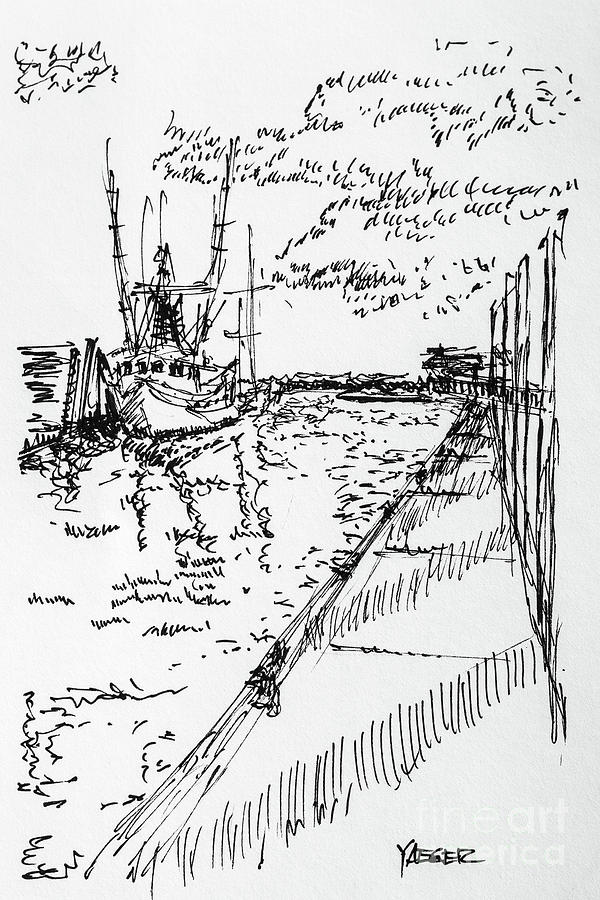 fine art
america
YAEGER